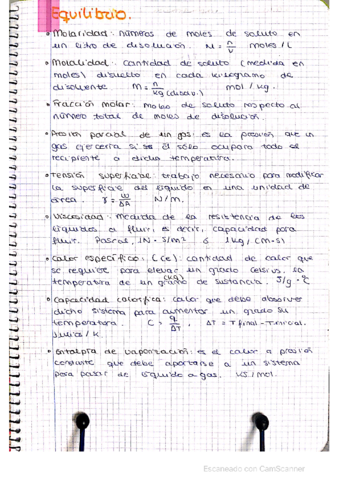 Equilibrio.
• Molaridad: números de moles de soluto en
un litro de disolución. M = n/V moles/L
• Molalidad: cantidad de soluto (medida en
moles) disuelto en cada kilogramo de
disolvente. M = n/kg (disolv.) mol/kg.
• Fracción molar: moles de soluto respecto al
número total de moles de disolución.
• Presión parcial de un gas: es la presión que un
gas ejercería si él sólo ocupara todo el
recipiente a dicha temperatura.
• Tensión superficial: trabajo necesario para modificar
la superficie del líquido en una unidad de
área. γ = W/ΔA N/m.
• Viscosidad: medida de la resistencia de los
líquidos a fluir, es decir, capacidad para
fluir. Pascal, 1N·S/m² ó 1kg/(m·s)
• Calor específico: (Ce): cantidad de calor que
se requiere para elevar un grado Celsius, la
temperatura de un gramo (kg) de sustancia. J/g·ºC
• Capacidad calorífica: calor que debe absorver
dicho sistema para aumentar un grado su
temperatura. C = q/ΔT, ΔT = Tfinal - Tinicial.
Julios/K.
• Entalpía de vaporización: es el calor a presión
constante que debe aportarse a un sistema
para pasar de líquido a gas. KJ/mol.
Escaneado con CamScanner